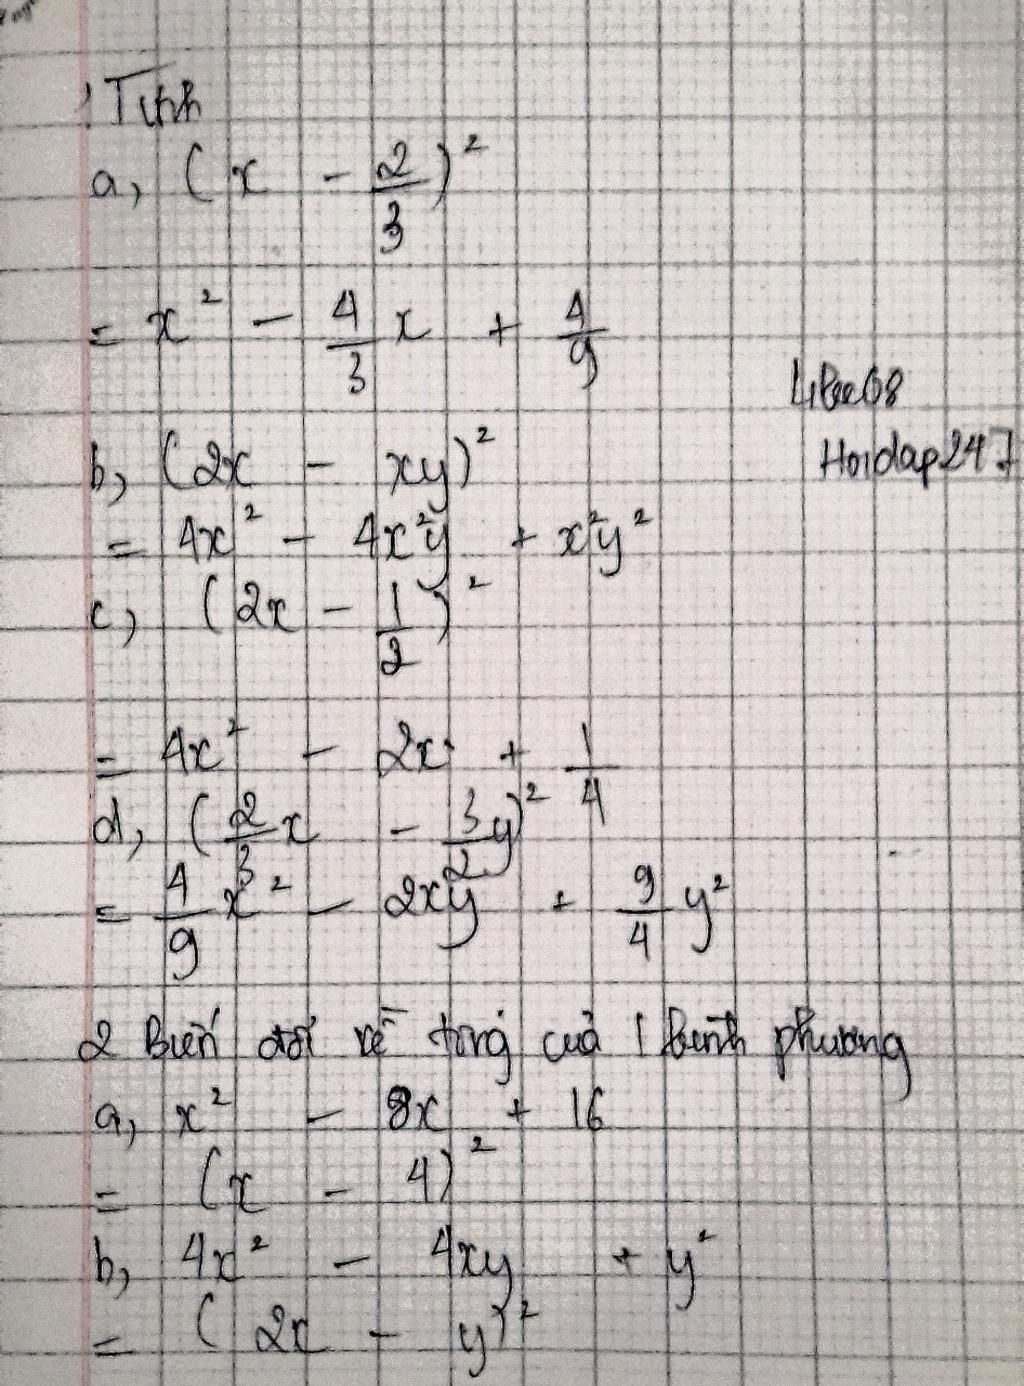 1 Tính
a, (x - 2/3)²
= x² - 4/3 x + 4/9
LiBee08
Hoidap247
b, (2x - xy)²
= 4x² - 4x²y + x²y²
c, (2x - 1/2)²
= 4x² - 2x + 1/4
d, (2/3 x - 3/2 y)²
= 4/9 x² - 2xy + 9/4 y²
2 Biến đổi về tổng của 1 bình phương
a, x² - 8x + 16
= (x - 4)²
b, 4x² - 4xy + y²
= (2x - y)²